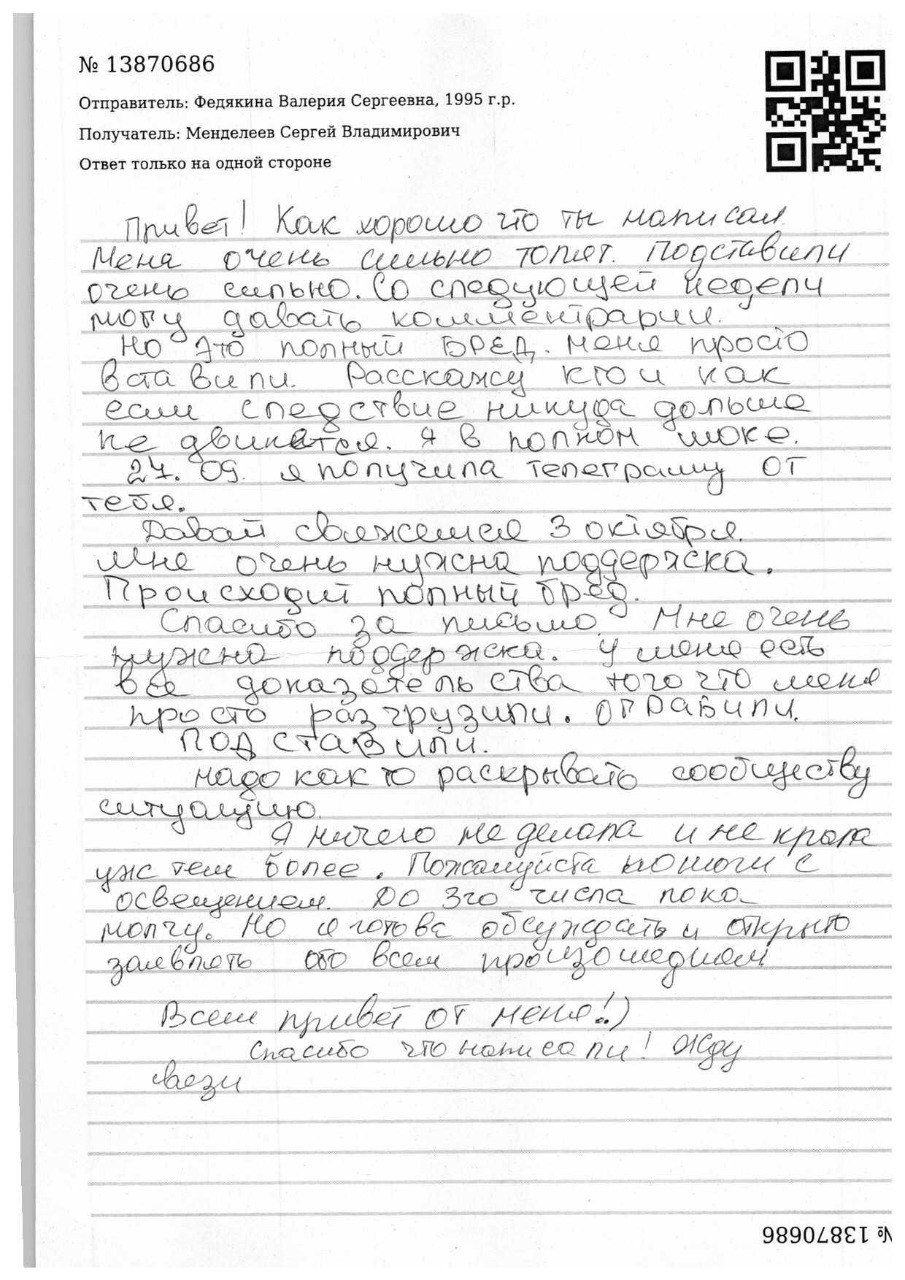 № 13870686
Отправитель: Федякина Валерия Сергеевна, 1995 г.р.
Получатель: Менделеев Сергей Владимирович
Ответ только на одной стороне
Привет! Как хорошо что ты написал
Меня очень сильно топят. Подставили
очень сильно. Со следующей недели
могу давать комментрарии.
Но это полный БРЕД. Меня просто
вставили. Расскажу кто и как
если следствие никуда дальше
не двинется. Я в полном шоке.
27.09. я получила телеграмму от
тебя.
Давай свяжемся 3 октября.
Мне очень нужна поддержка.
Происходит полный бред.
Спасибо за письмо. Мне очень
нужна поддержка. У меня есть
все доказательства того что меня
просто разгрузили. ограбили.
ПОДСТАВИЛИ.
надо как то раскрывать сообществу
ситуацию.
Я ничего не делала и не крала
уж тем более. Пожалуйста помоги с
освещением. До 3го числа пока
молчу. Но я готова обсуждать и открыто
заявлять обо всем произошедшем
Всем привет от меня!:)
Спасибо что написали! Жду
связи
№ 13870686